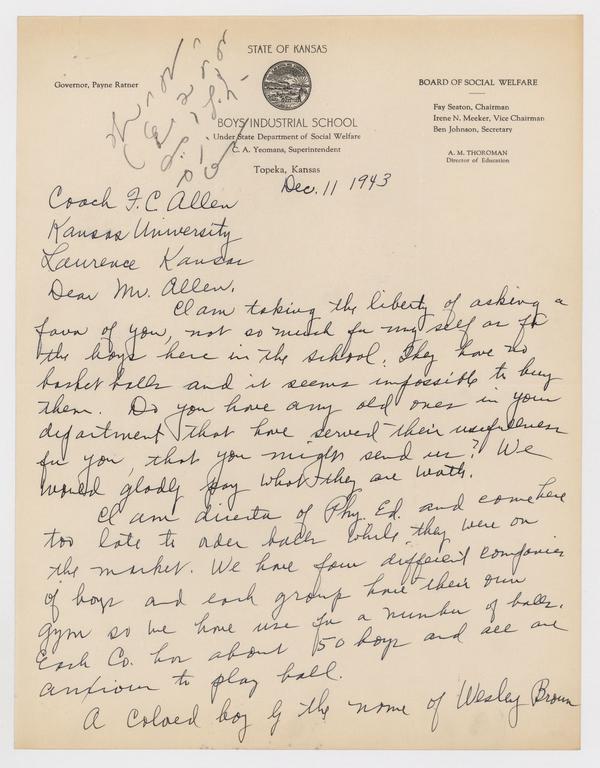 STATE OF KANSAS
Governor, Payne Ratner
BOARD OF SOCIAL WELFARE
Fay Seaton, Chairman
Irene N. Meeker, Vice Chairman
Ben Johnson, Secretary
A. M. THOROMAN
Director of Education
BOYS INDUSTRIAL SCHOOL
Under State Department of Social Welfare
C. A. Yeomans, Superintendent
Topeka, Kansas
Dec. 11 1943
Coach F. C. Allen
Kansas University
Laurence Kansas
Dear Mr. Allen.
I am taking the liberty of asking a
favor of you, not so much for my self as for
the boys here in the school. They have no
basket balls and it seems impossible to buy
them. Do you have any old ones in your
department that have served their usefulness
for you, that you might send us? We
would gladly pay what they are worth.
I am director of Phy. Ed. and come here
too late to order balls while they were on
the market. We have four different companies
of boys and each group have their own
gym so we have use for a number of balls.
Each Co. has about 50 boys and all are
anxious to play ball.
A colored boy by the name of Wesley Brown